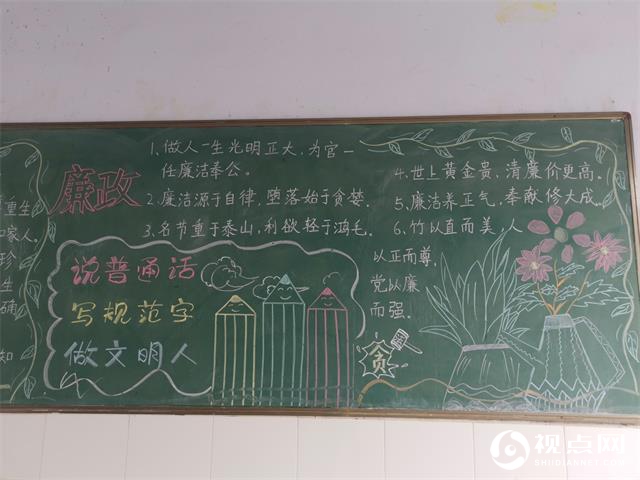 重生
和家人。
珍
生
确
知
廉政
1.做人一生光明正大，为官一
任廉洁奉公。
2.廉洁源于自律，堕落始于贪婪。
3.名节重于泰山，利欲轻于鸿毛。
4.世上黄金贵，清廉价更高。
5.廉洁养正气，奉献修大成。
6.竹以直而美，人
以正而尊，
党以廉
而强。
说普通话
写规范字
做文明人
贪
视点网
SHIDIANNET.COM